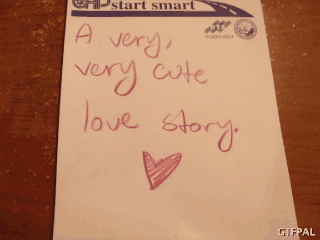 start smart
A very,
very cute
love story.
GIFPAL